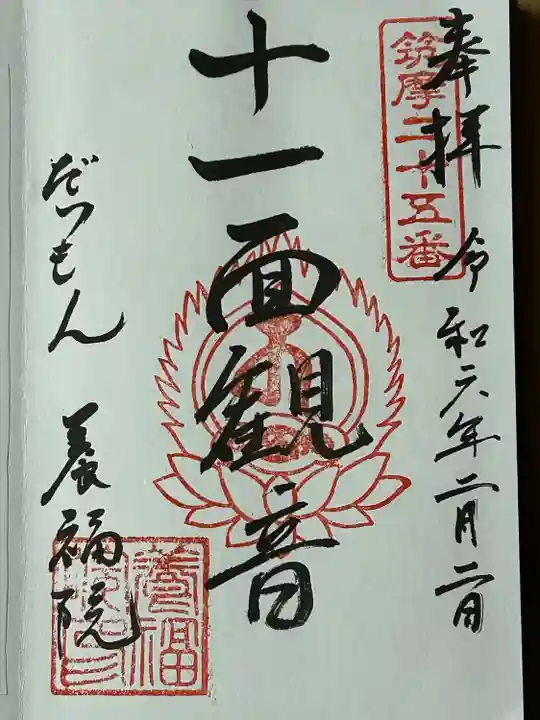 奉拝
筑摩二十五番
令和六年二月二日
十一面観音
だいもん
養福院
養福